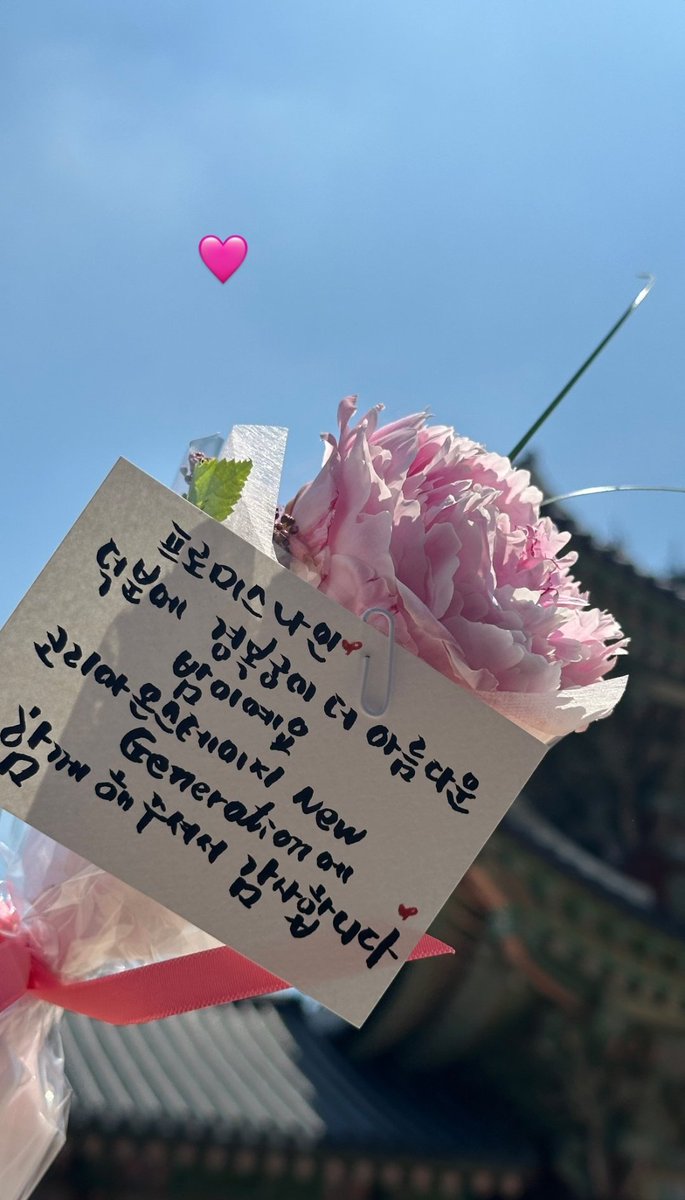 프로미스나인
덕분에 경복궁이 더 아름다운
밤이에요
코리아온스테이지 New
Generation에
함께 해 주셔서 감사합니다